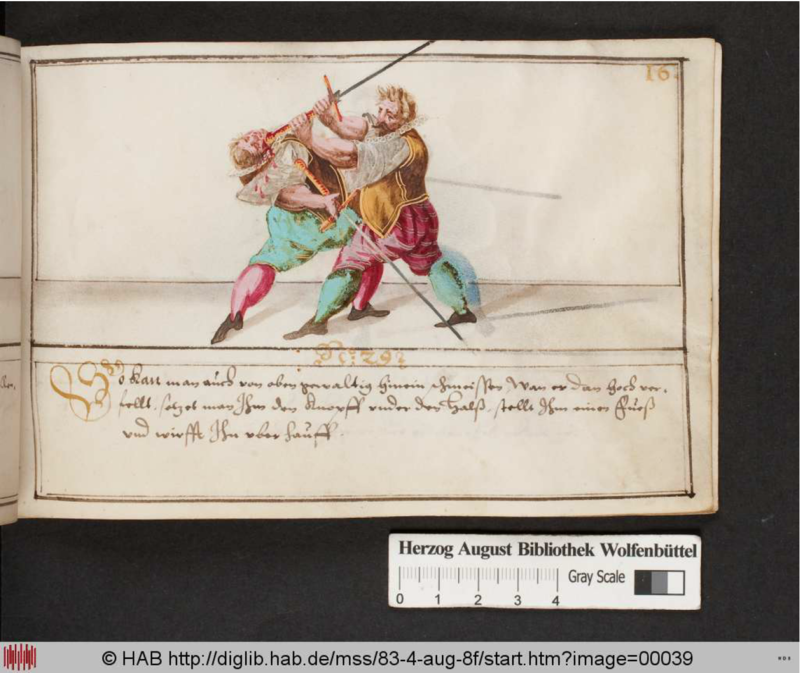 16.
No: 29:
So kan man auch von oben gewaltig hinein schmeissen Wan er dan hoch ver-
sellt, setzet man Ihm den Knopff under den Halß, stellt Ihm einen Fueß
und wirfft Ihn uber hauff.
Herzog August Bibliothek Wolfenbüttel
Gray Scale
0 1 2 3 4
© HAB http://diglib.hab.de/mss/83-4-aug-8f/start.htm?image=00039